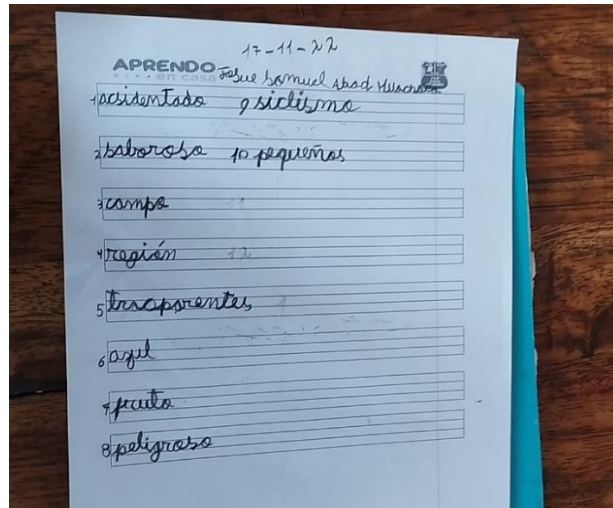 17-11-22
APRENDO
en casa
Josue Samuel Abad
1 acsidentado 9 siclismo
2 saboroso 10 pequeños
3 campo 11
4 región 12
5 trasparentes
6 azul
7 fruto
8 peligroso